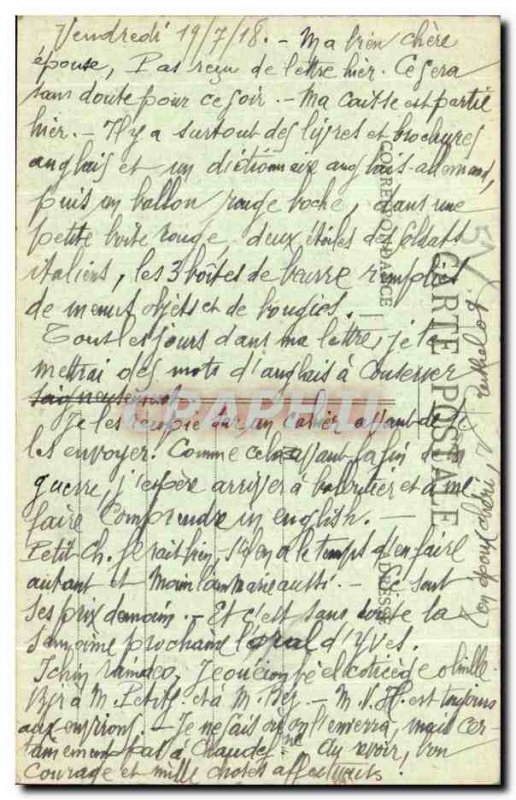 Vendredi 19/7/18. - Ma bien chère
épouse, Pas reçu de lettre hier. Ce sera
sans doute pour ce soir. - Ma caisse est partie
hier. - Il y a surtout des livres et brochures
anglais et un dictionnaire anglais-allemand,
puis un ballon rouge boche, dans une
petite boîte rouge, deux étoiles de soldats
italiens, les 3 boîtes de beurre remplies
de menus objets et de bougies.
Tous les jours dans ma lettre, je te
mettrai des mots d'anglais à conserver
soigneusement
Je les copie sur un cahier avant de te
les envoyer. Comme cela avant la fin de la
guerre, j'espère arriver à baragouiner et à me
faire comprendre in english. -
Petit Ch. ferait bien, s'il en a le temps d'en faire
autant et Marie aussi. - Ce sont
ses prix demain. - Et c'est sans doute la
semaine prochaine l'oral d'Yves.
mille
Bjr à M. Petit et à M. - M. V. H. est toujours
aux environs. - Je ne sais où on l'enverra, mais cer-
tainement pas à Au revoir, bon
courage et mille choses affectueuses.
CARTE POSTALE
CORRESPONDANCE
ADRESSE
Ton époux chéri,
CARAPHIL